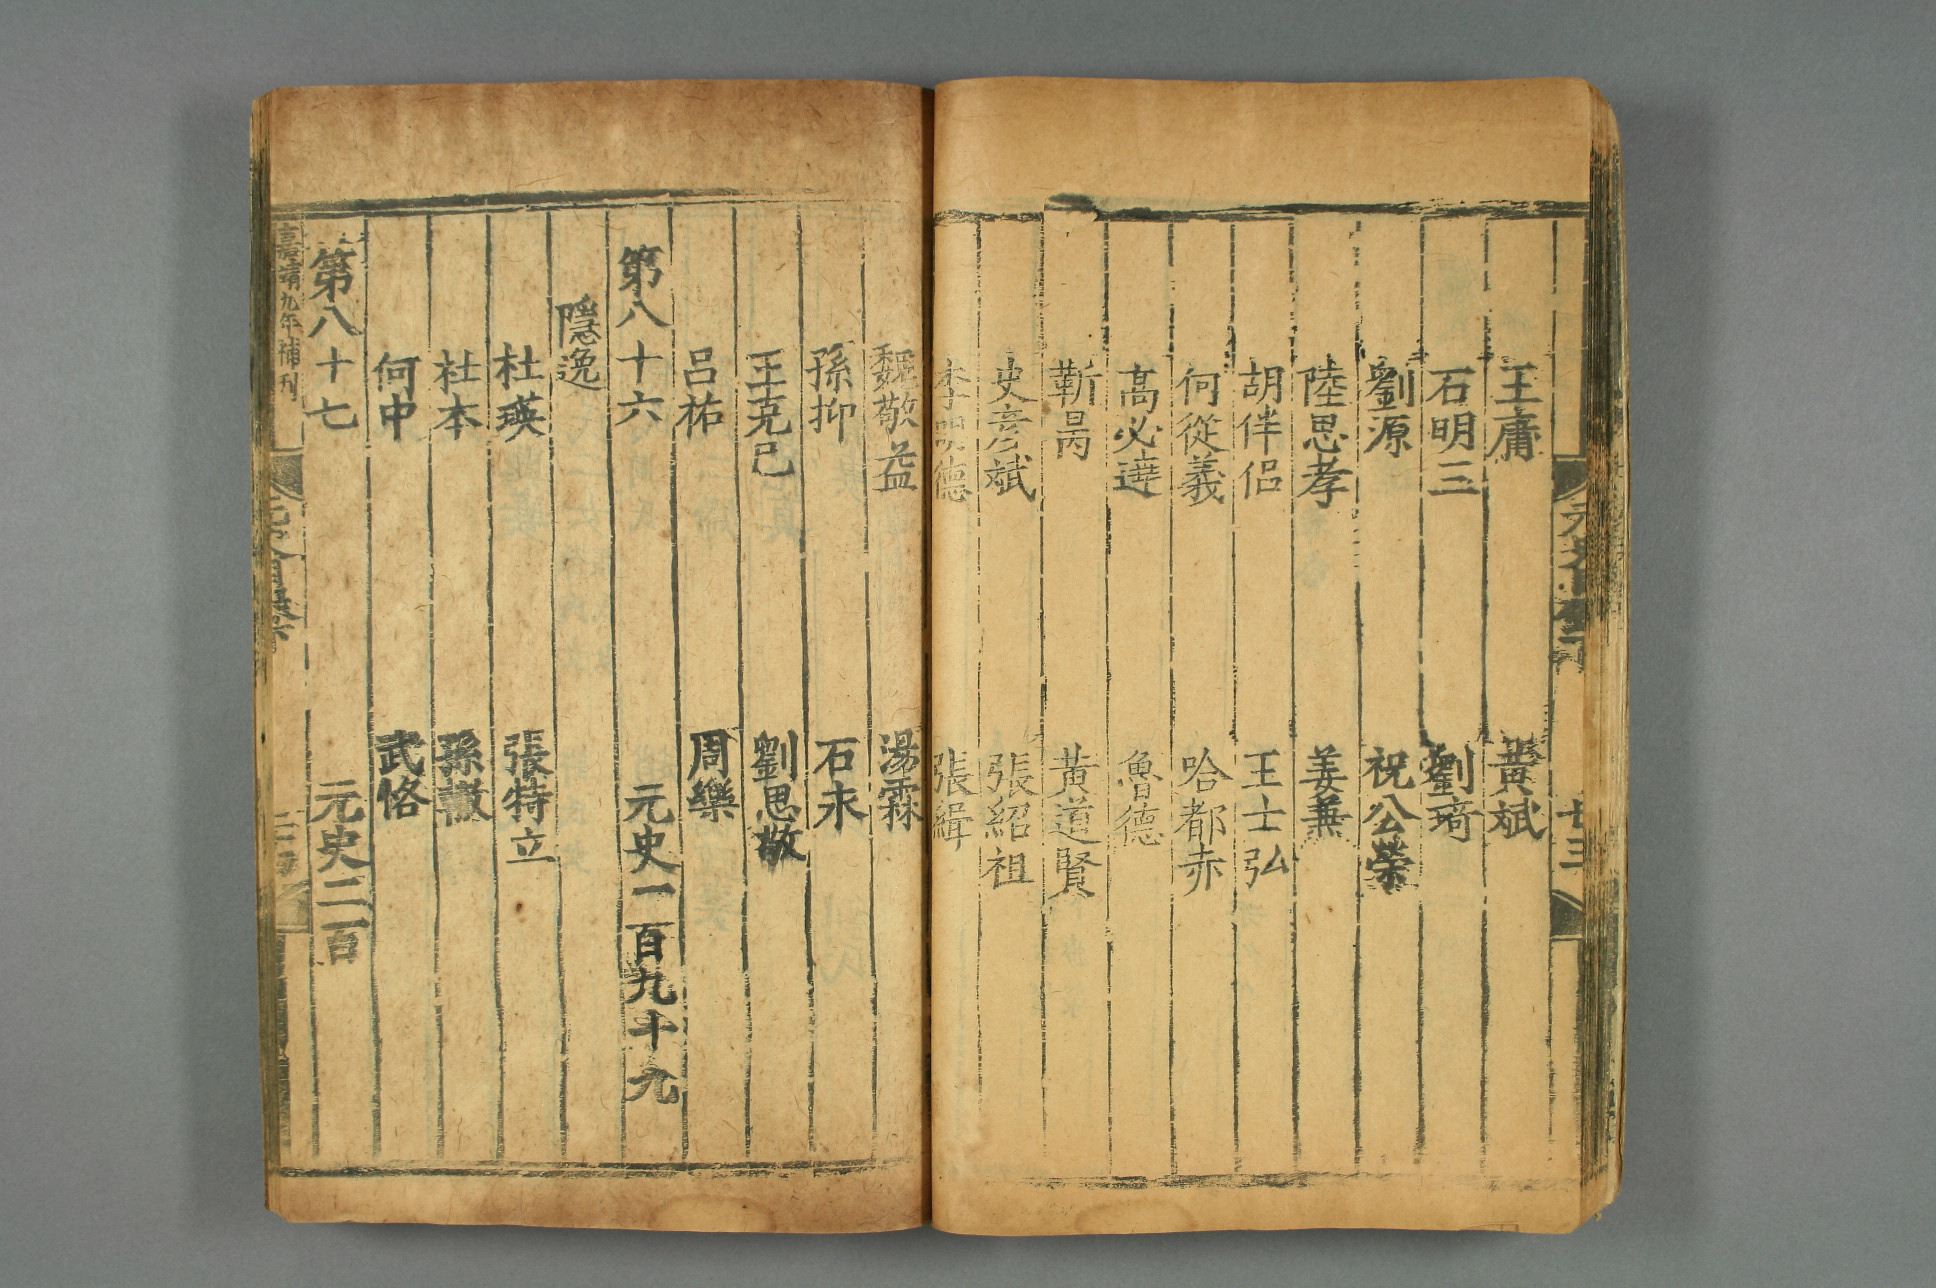 王庸 黃斌
石明三 劉琦
劉源 祝公榮
陸思孝 姜兼
胡伴侶 王士弘
何從義 哈都赤
高必達 魯德
靳昺 黃道賢
史彥斌 張紹祖
李明德 張緝
魏敬益 湯霖
孫抑 石永
王克己 劉思敬
呂祐 周樂
第八十六 元史一百九十九
隱逸
杜瑛 張特立
杜本 孫轍
何中 武恪
第八十七 元史二百
嘉靖九年補刊